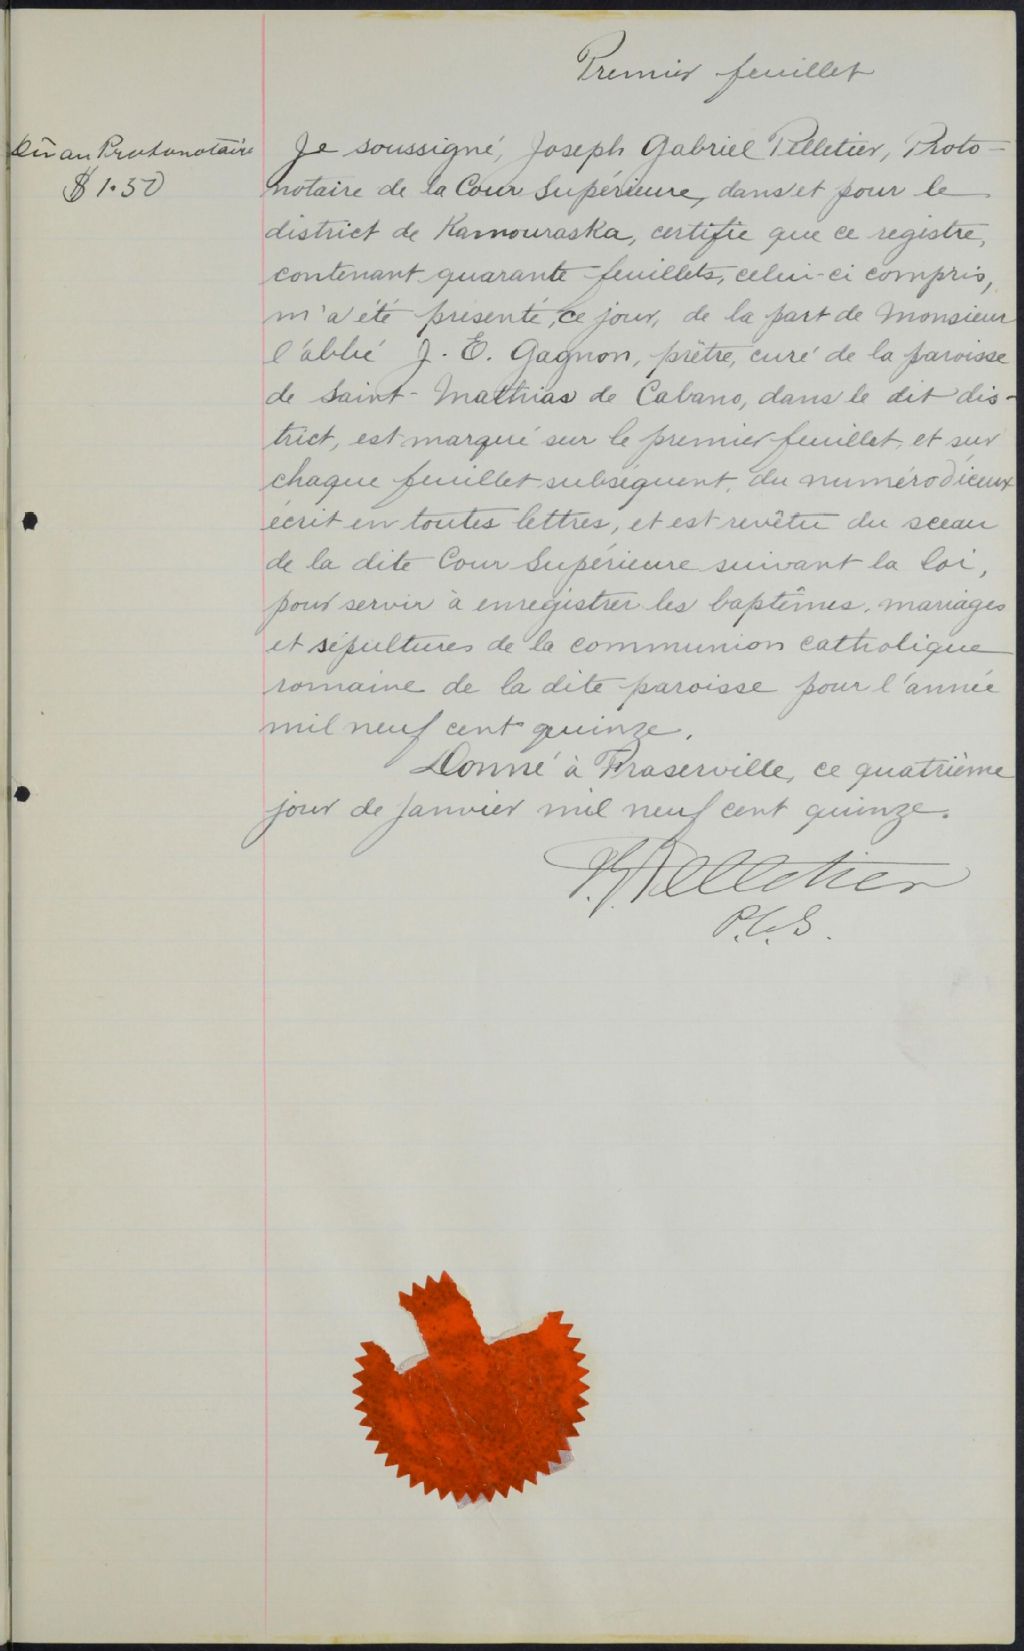 Premier feuillet
Dû au Protonotaire
$1.50
Je soussigné, Joseph Gabriel Pelletier, Proto-
notaire de la Cour Supérieure, dans et pour le
district de Kamouraska, certifie que ce registre,
contenant quarante feuillets, celui-ci compris,
m'a été présenté, ce jour, de la part de Monsieur
l'abbé J. E. Gagnon, prêtre, curé de la paroisse
de Saint-Mathias de Cabano, dans le dit dis-
trict, est marqué sur le premier feuillet, et sur
chaque feuillet subséquent, du numéro d'iceux
écrit en toutes lettres, et est revêtu du sceau
de la dite Cour Supérieure suivant la loi,
pour servir à enregistrer les baptêmes, mariages
et sépultures de la communion catholique
romaine de la dite paroisse pour l'année
mil neuf cent quinze.
Donné à Fraserville, ce quatrième
jour de Janvier mil neuf cent quinze.
J.G. Pelletier
P.C.S.